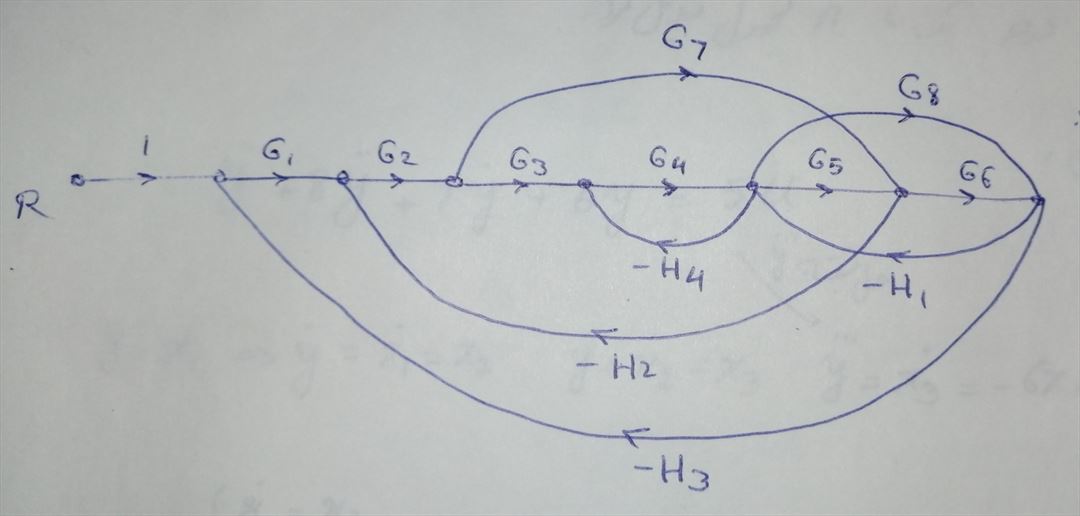 G7
G8
1 G1 G2 G3 G4 G5 G6
R
-H4 -H1
-H2
-H3